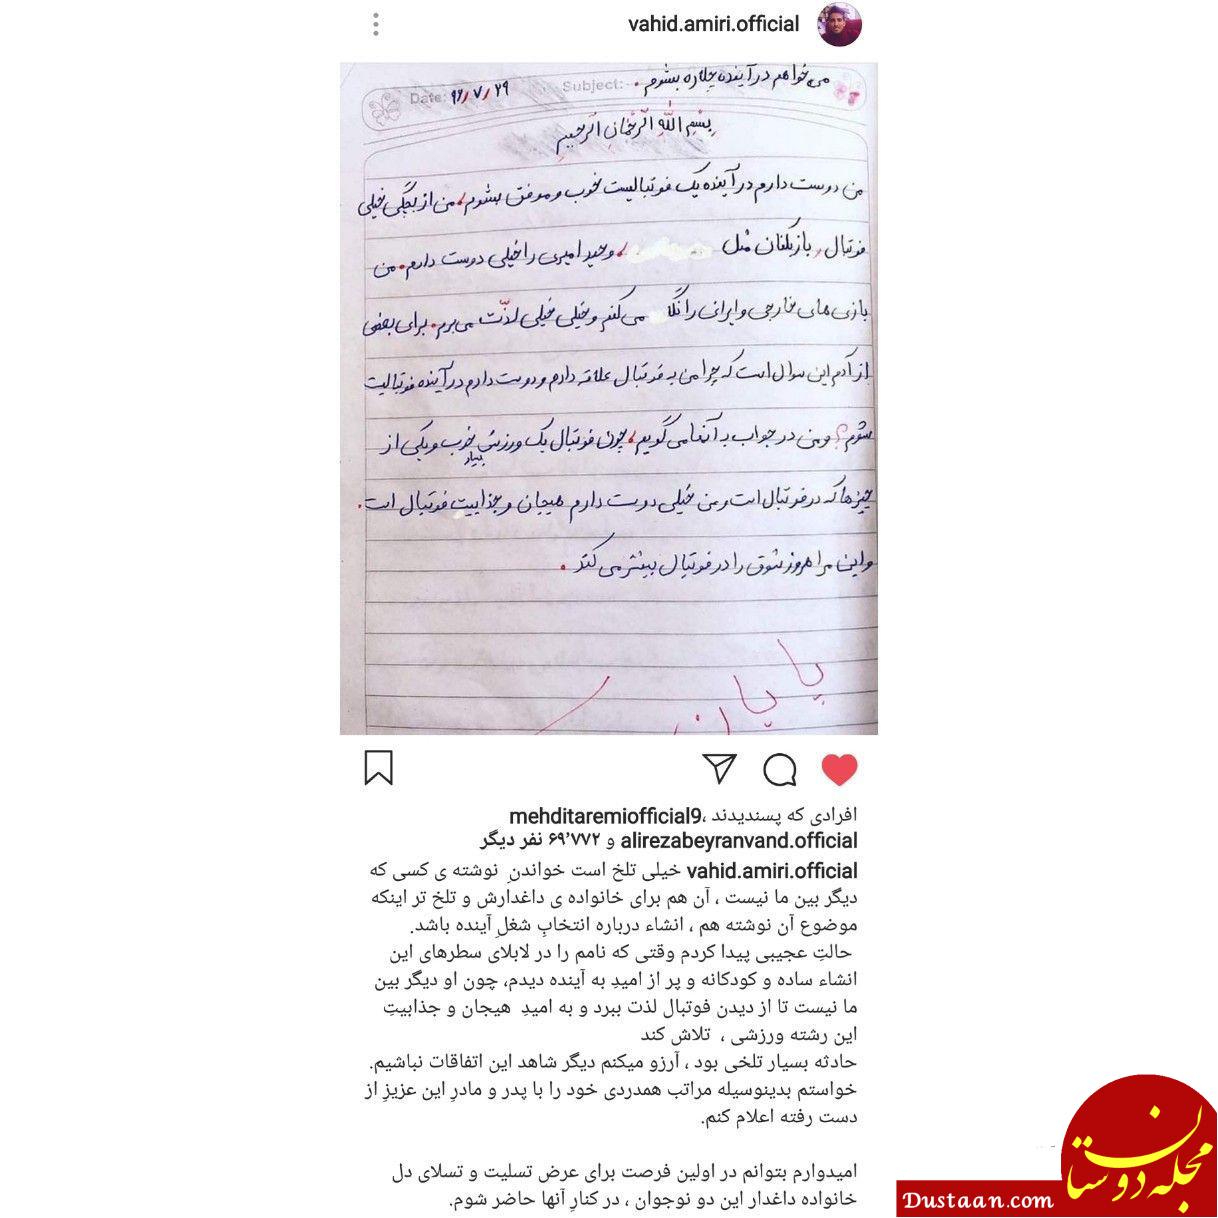 vahid.amiri.official
می خواهم در آینده چکاره بشوم.
Subject:
Date: ۹۶/۷/۲۹
بِسْمِ اللهِ الرَّحْمانِ الرَّحیمِ
من دوست دارم در آینده یک فوتبالیست خوب و موفق بشوم، من از بچگی خیلی
فوتبال، بازیکنان مثل ، وحید امیری را خیلی دوست دارم. من
بازی های خارجی و ایرانی را نگا می کنم و خیلی خیلی لذّت می برم. برای بعضی
از آدم این سوال است که چرا من به فوتبال علاقه دارم و دوست دارم در آینده فوتبالیت
شوم؟ و من در جواب به آنها می گویم، چون فوتبال یک ورزش بسیار خوب و یکی از
چیزها که در فوتبال است و من خیلی دوست دارم هیجان و جذابیت فوتبال است.
و این مرا هروز شوق را در فوتبال بیشتر می کند.
پایان
افرادی که پسندیدند ،mehditaremiofficial9
alirezabeyranvand.official و ۶۹٬۷۷۲ نفر دیگر
vahid.amiri.official خیلی تلخ است خواندنِ نوشته ی کسی که
دیگر بین ما نیست ، آن هم برای خانواده ی داغدارش و تلخ تر اینکه
موضوع آن نوشته هم ، انشاء درباره انتخابِ شغلِ آینده باشد.
حالتِ عجیبی پیدا کردم وقتی که نامم را در لابلای سطرهای این
انشاء ساده و کودکانه و پر از امیدِ به آینده دیدم، چون او دیگر بین
ما نیست تا از دیدن فوتبال لذت ببرد و به امیدِ هیجان و جذابیتِ
این رشته ورزشی ، تلاش کند
حادثه بسیار تلخی بود ، آرزو میکنم دیگر شاهد این اتفاقات نباشیم.
خواستم بدینوسیله مراتب همدردی خود را با پدر و مادرِ این عزیزِ از
دست رفته اعلام کنم.
امیدوارم بتوانم در اولین فرصت برای عرض تسلیت و تسلای دل
خانواده داغدار این دو نوجوان ، در کنارِ آنها حاضر شوم.
مجله دوستان
Dustaan.com